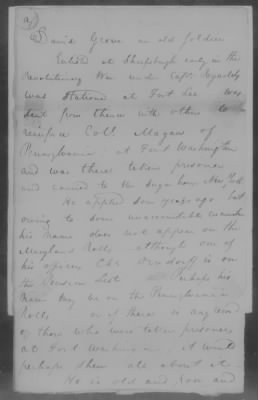 David Grove an old soldier
Enlisted at Sharpsburgh early in the
revolutionary War under Capt Reynolds
was stationed at Fort Lee was
sent from thence with others to
reinforce Coll Magaw of
Pennsylvania at Fort Washington
and was there taken prisoner
and carried to the Sugar house New York
He applied some years ago but
owing to some unaccountable
his name does not appear on the
Maryland Rolls although one of
his officers Chr Orndorff is on
the Pension List Perhaps his
Name may be on the Pennsylvania
Rolls or if there is any record
of those who were taken prisoners
at Fort Washington it would
perhaps shew all about it
He is old and poor and